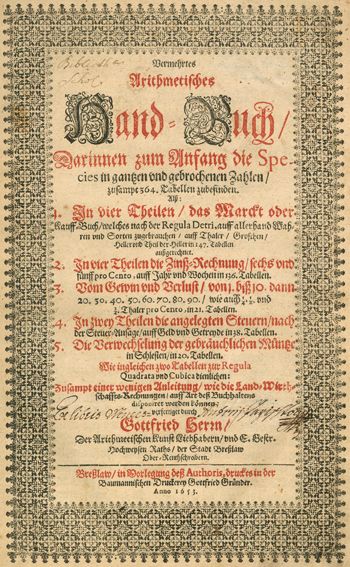 Bibliotheca
Schol.
Vermehrtes
Arithmetisches
Hand-Buch/
Darinnen zum Anfang die Spe-
cies in gantzen vnd gebrochenen Zahlen/
zusampt 364. Tabellen zubefinden.
Alß:
1. In vier Theilen/ das Marckt oder
Kauff-Buch/ welches nach der Regula Detri, auff allerhand Wah-
ren vnd Sorten zugebrauchen/ auff Thaler/ Groschen/
Heller vnd Theil der Heller in 147. Tabellen
außgerechnet.
2. In vier Theilen die Zinß-Rechnung/ sechs vnd
fünff pro Cento, auff Jahr vnd Wochen in 136. Tabellen.
3. Vom Gewin vnd Verlust/ von 1. biß 10. dann
20. 30. 40. 50. 60. 70. 80. 90./ wie auch ¼. ½. vnd
¾. Thaler pro Cento, in 21. Tabellen.
4. In zwey Theilen die angelegten Steuern/ nach
der Steuer-Anlage/ auff Geld vnd Getreyde in 38. Tabellen.
5. Die Verwechselung der gebräuchlichen Müntze
in Schlesien/ in 20. Tabellen.
Wie ingleichen zwo Tabellen zur Regula
Quadrata vnd Cubica dienlichen:
Zusampt einer wenigen Anleitung/ wie die Land-Wirth-
schaffts-Rechnungen/ auff Art deß Buchhaltens
disponiret werden können/
verfertiget durch
Gottfried Herrn/
Der Arithmetischen Kunst Liebhabern/ vnd E. Gestr.
Hochweysen Raths/ der Stadt Breßlaw
Ober-Renthschreibern.
Breßlaw/ in Vorlegung deß Authoris, druckts in der
Baumannischen Druckerey Gottfried Gründer.
Anno 1653.